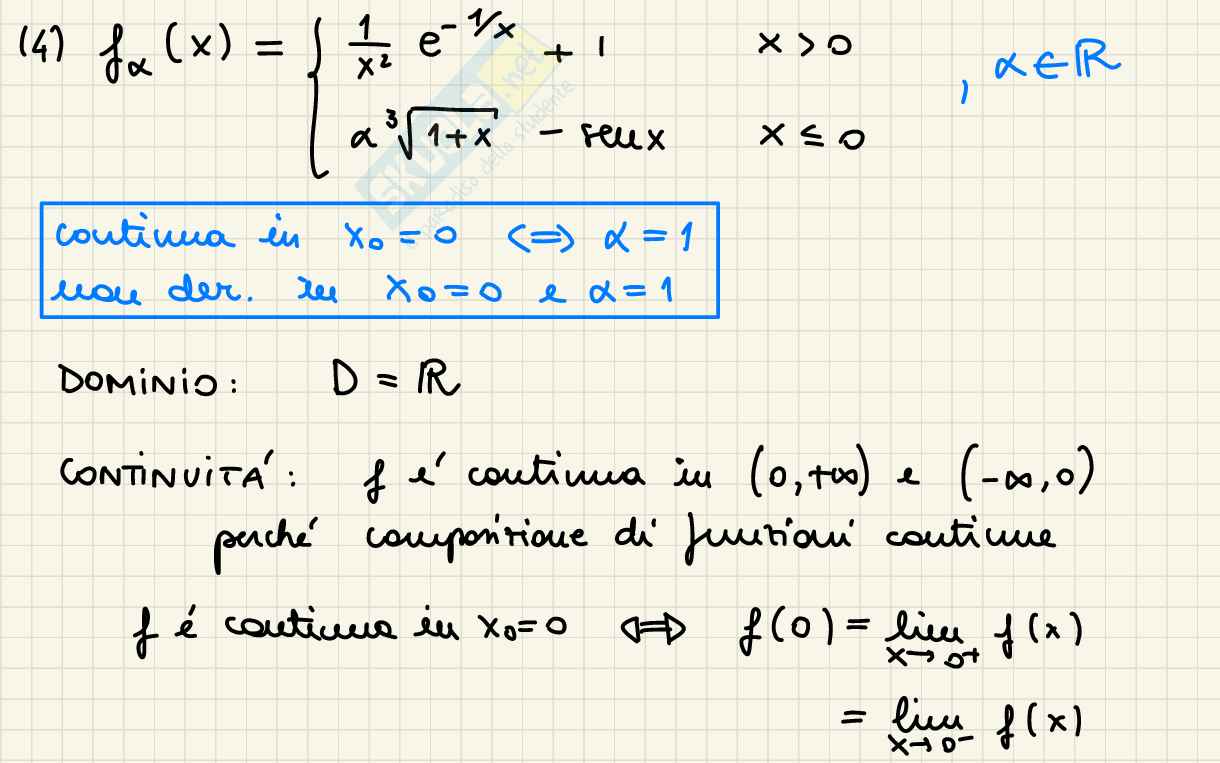 (4) fα(x) = { 1/x² e^(-1/x) + 1   x > 0
, α ∈ ℝ
α ∛(1+x) - sen x   x ≤ 0
SKUOLA.net
paradiso dello studente
continua in x₀ = 0 <=> α = 1
non der. in x₀ = 0 e α = 1
DOMINIO: D = ℝ
CONTINUITA': f e' continua in (0,+∞) e (-∞,0)
perché composizione di funzioni continue
f é continua in x₀=0 <=> f(0) = lim x→0+ f(x)
= lim x→0- f(x)